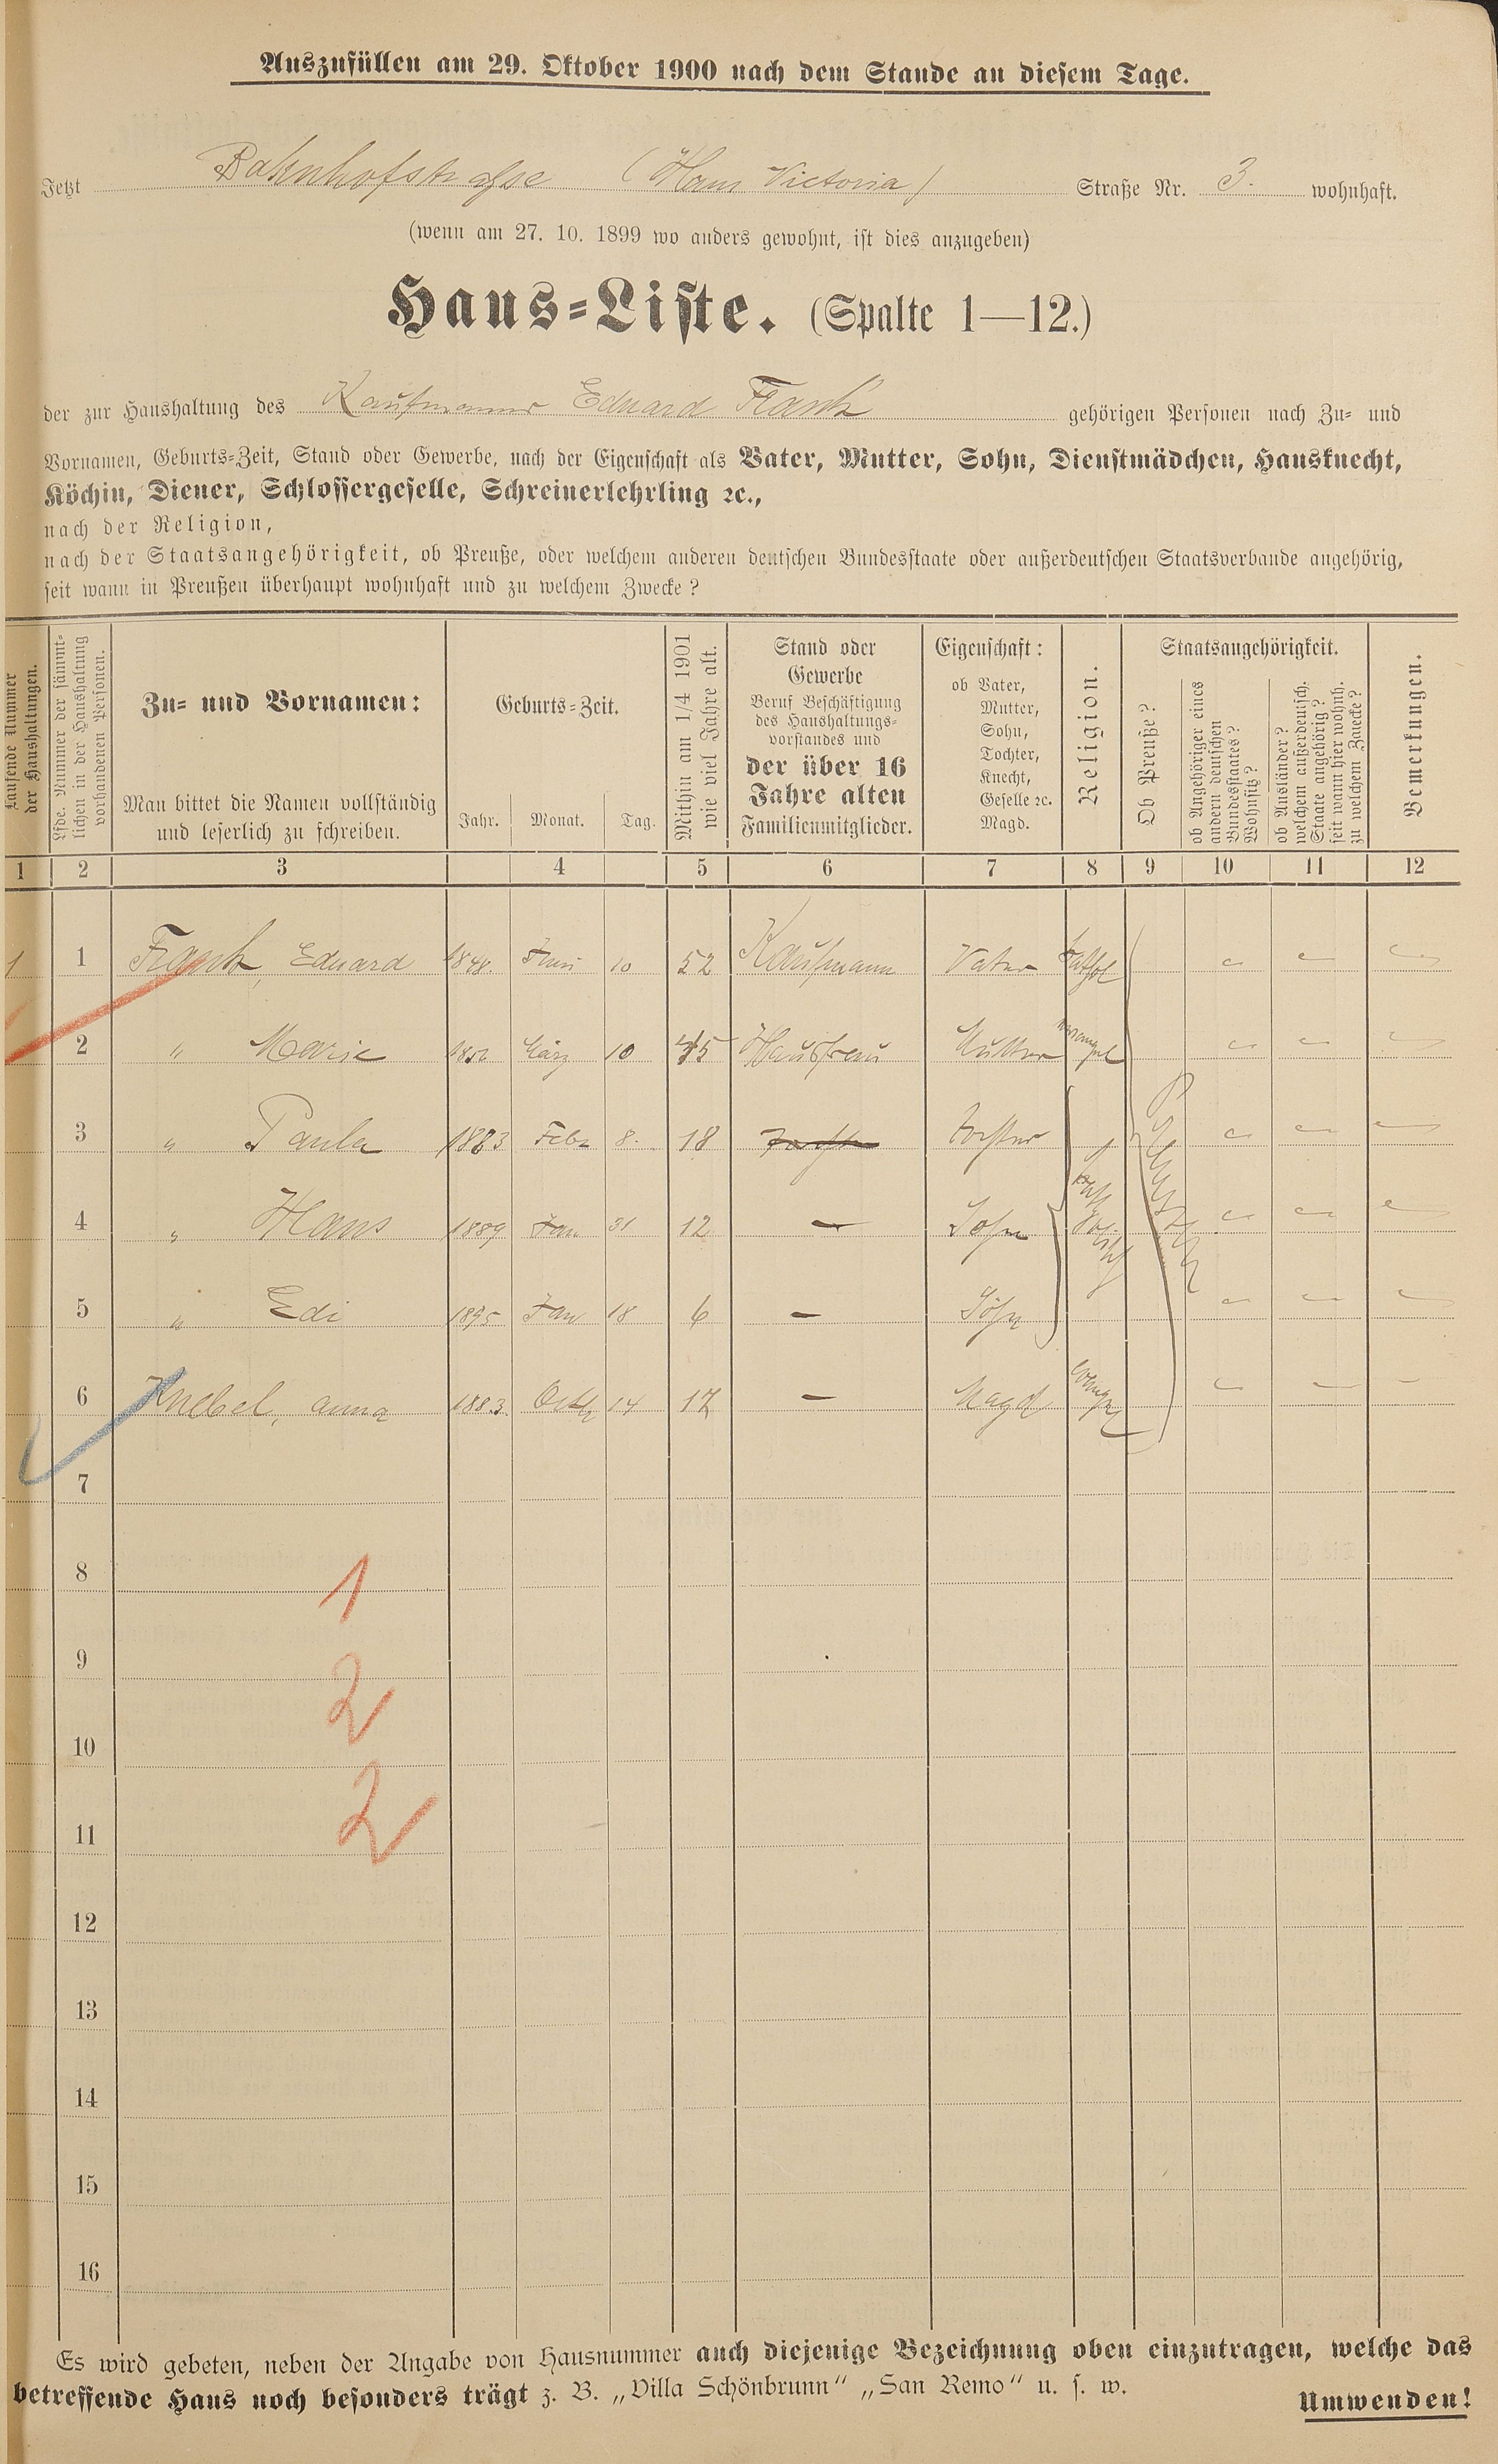 Auszufüllen am 29. Oktober 1900 nach dem Stande an diesem Tage.
Jetzt Bahnhofstraße (Haus Victoria) Straße Nr. 3. wohnhaft.
(wenn am 27. 10. 1899 wo anders gewohnt, ist dies anzugeben)
Haus-Liste. (Spalte 1—12.)
der zur Haushaltung des Kaufmanns Eduard Frank gehörigen Personen nach Zu- und
Vornamen, Geburts-Zeit, Stand oder Gewerbe, nach der Eigenschaft als Vater, Mutter, Sohn, Dienstmädchen, Hausknecht,
Köchin, Diener, Schlossergeselle, Schreinerlehrling ꝛc.,
nach der Religion,
nach der Staatsangehörigkeit, ob Preuße, oder welchem anderen deutschen Bundesstaate oder außerdeutschen Staatsverbande angehörig,
seit wann in Preußen überhaupt wohnhaft und zu welchem Zwecke?
Laufende Nummer
der Haushaltungen.
Lfde. Nummer der sämmt-
lichen in der Haushaltung
vorhandenen Personen.
Zu- und Vornamen:
Man bittet die Namen vollständig
und leserlich zu schreiben.
Geburts-Zeit.
Jahr. Monat. Tag.
Mithin am 1/4 1901
wie viel Jahre alt.
Stand oder
Gewerbe
Beruf Beschäftigung
des Haushaltungs-
vorstandes und
der über 16
Jahre alten
Familienmitglieder.
Eigenschaft:
ob Vater,
Mutter,
Sohn,
Tochter,
Knecht,
Geselle ꝛc.
Magd.
Religion.
Staatsangehörigkeit.
Ob Preuße?
ob Angehöriger eines
andern deutschen
Bundesstaates?
Wohnsitz?
ob Ausländer?
welchem außerdeutsch.
Staate angehörig?
seit wann hier wohnh.
zu welchem Zwecke?
Bemerkungen.
1 2 3 4 5 6 7 8 9 10 11 12
1 1 Frank, Eduard 1848. Juni 10 52 Kaufmann Vater kathol
2 " Marie März 10 45 Hausfrau Mutter evangel
3 " Paula 1883 Febr 8. 18 Tochter Tochter
4 " Hans 1889 Jan 31 12 — Sohn
5 " Edi 1895 Jan 18 6 — Sohn
6 Knebel, Anna 1883. Octb 14 17 — Magd evangel
7
8
1
9
2
10
2
11
12
13
14
15
16
Es wird gebeten, neben der Angabe von Hausnummer auch diejenige Bezeichnung oben einzutragen, welche das
betreffende Haus noch besonders trägt z. B. „Villa Schönbrunn“ „San Remo“ u. s. w.
Umwenden!